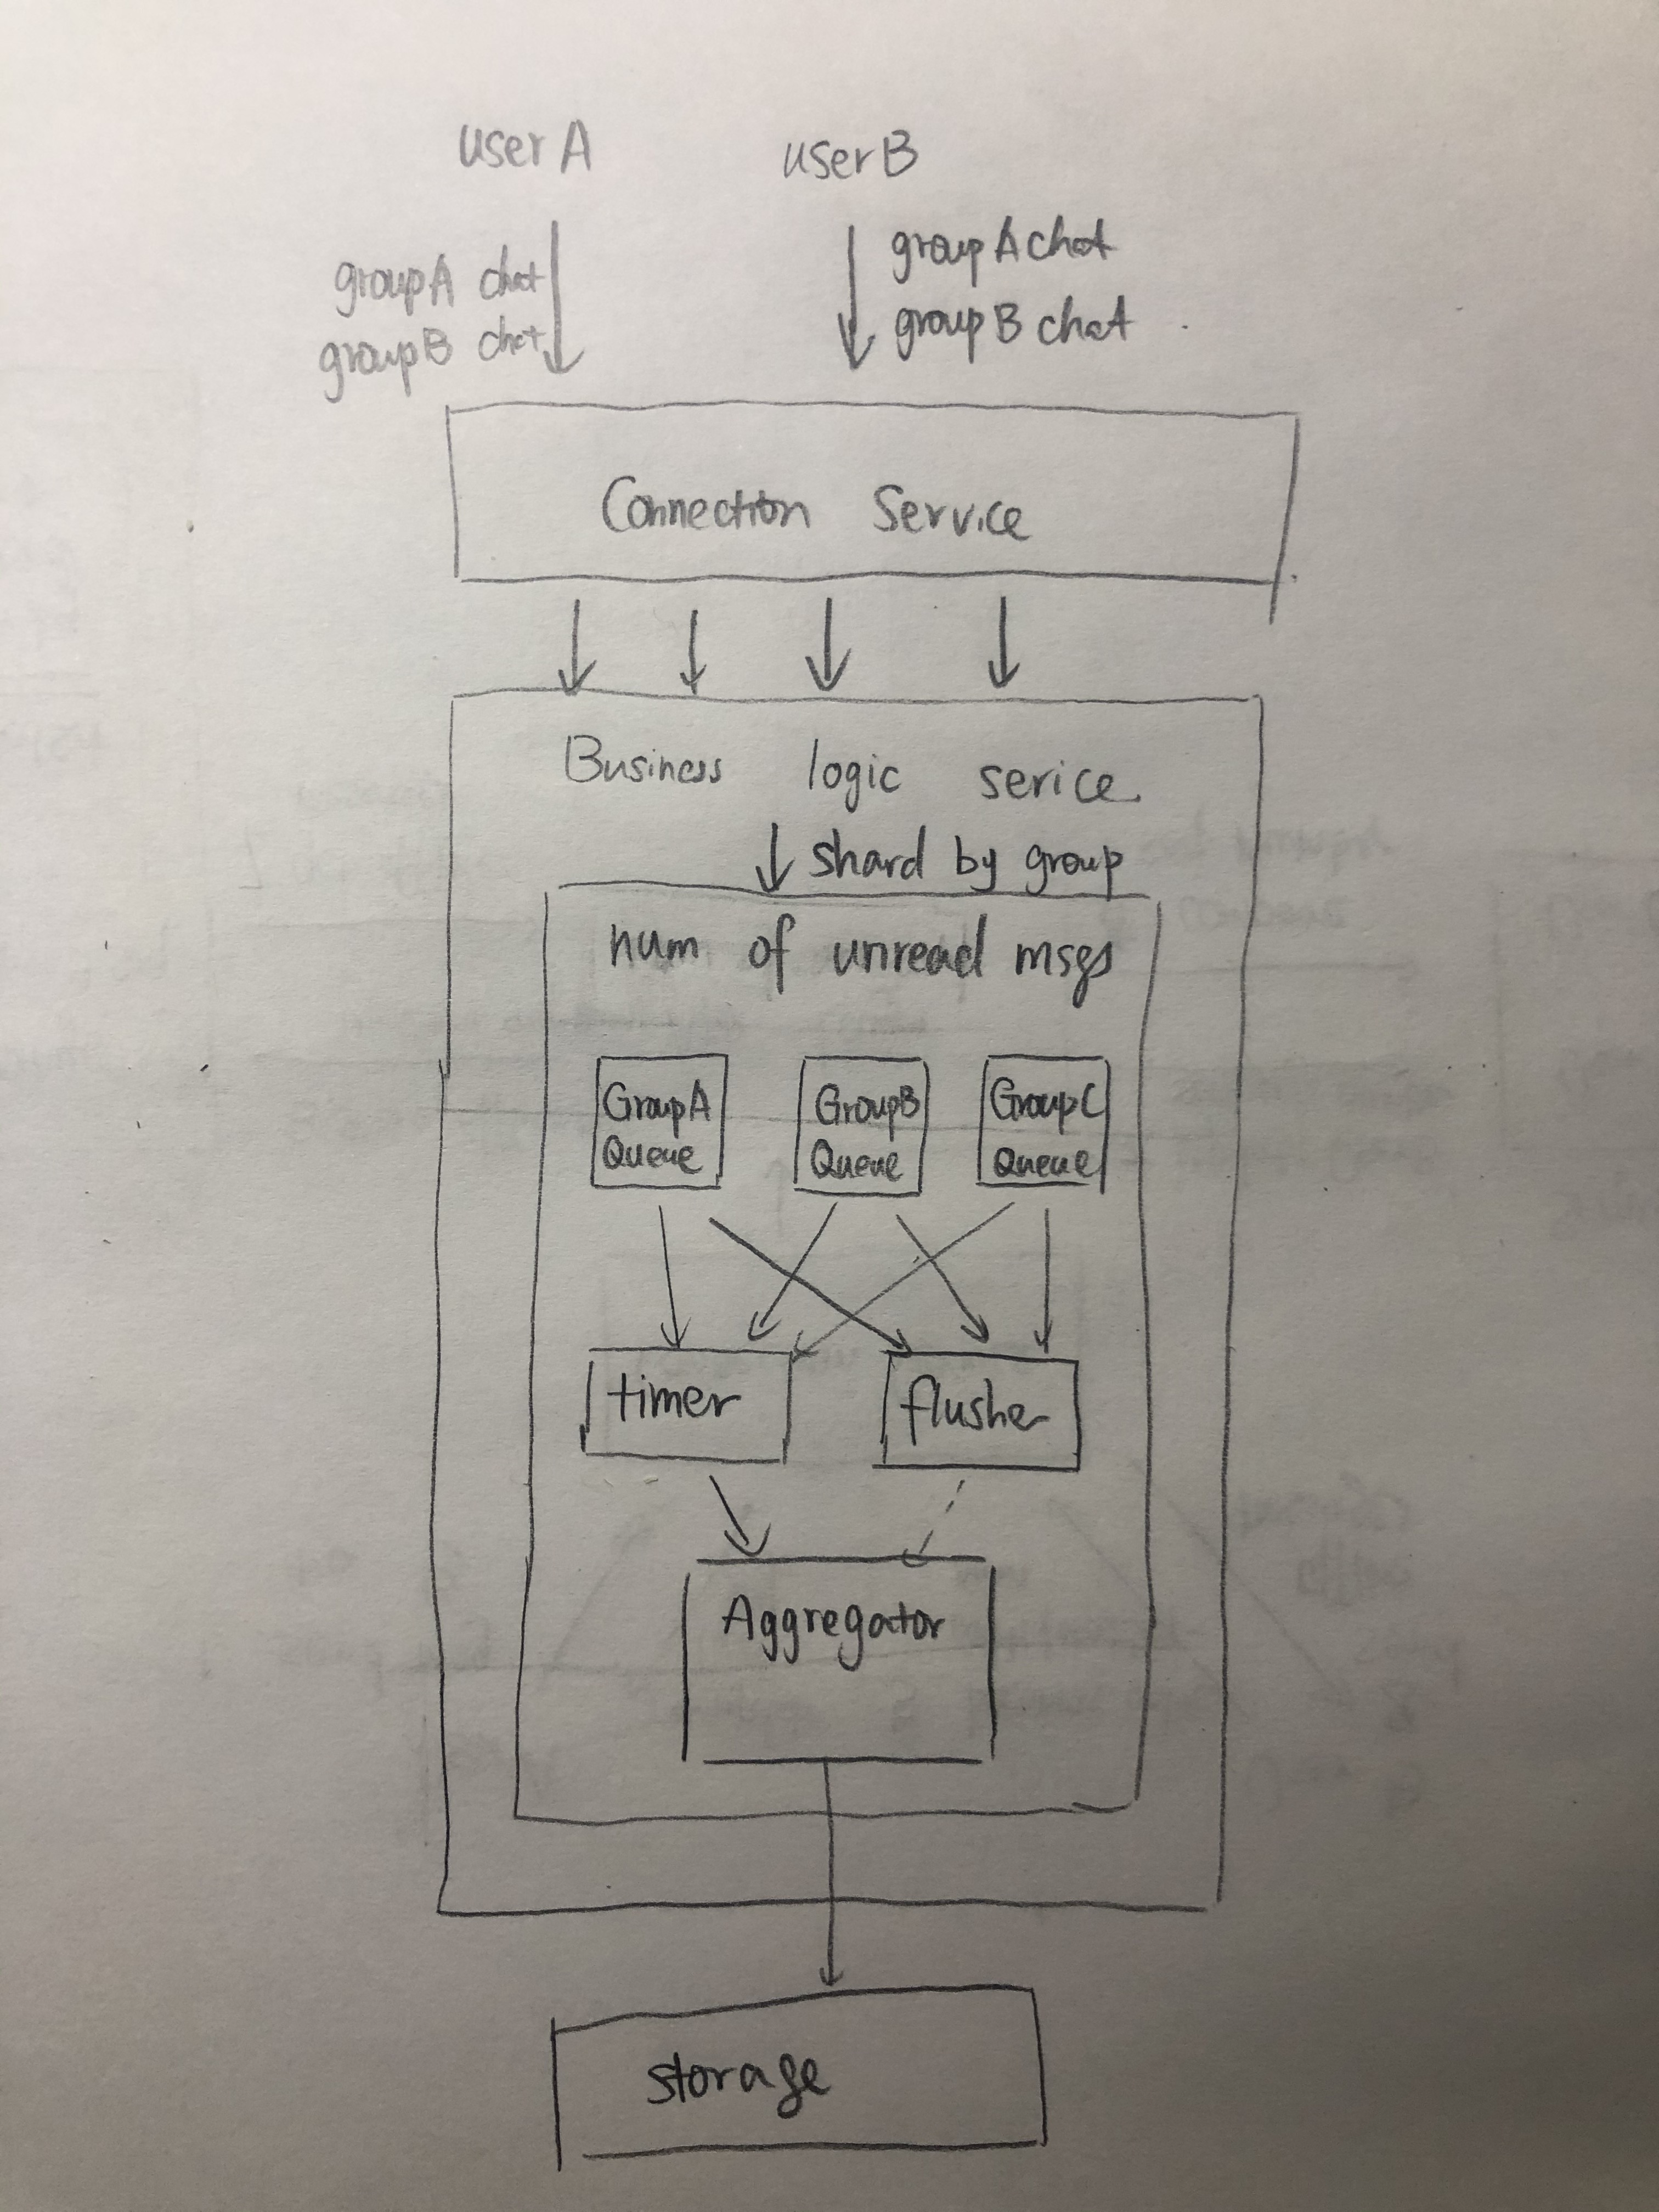 user A
user B
groupA chat
groupB chat
group A chat
group B chat
Connection Service
Business logic serice
shard by group
num of unread msgs
GroupA
Queue
GroupB
Queue
GroupC
Queue
timer
flusher
Aggregator
storage